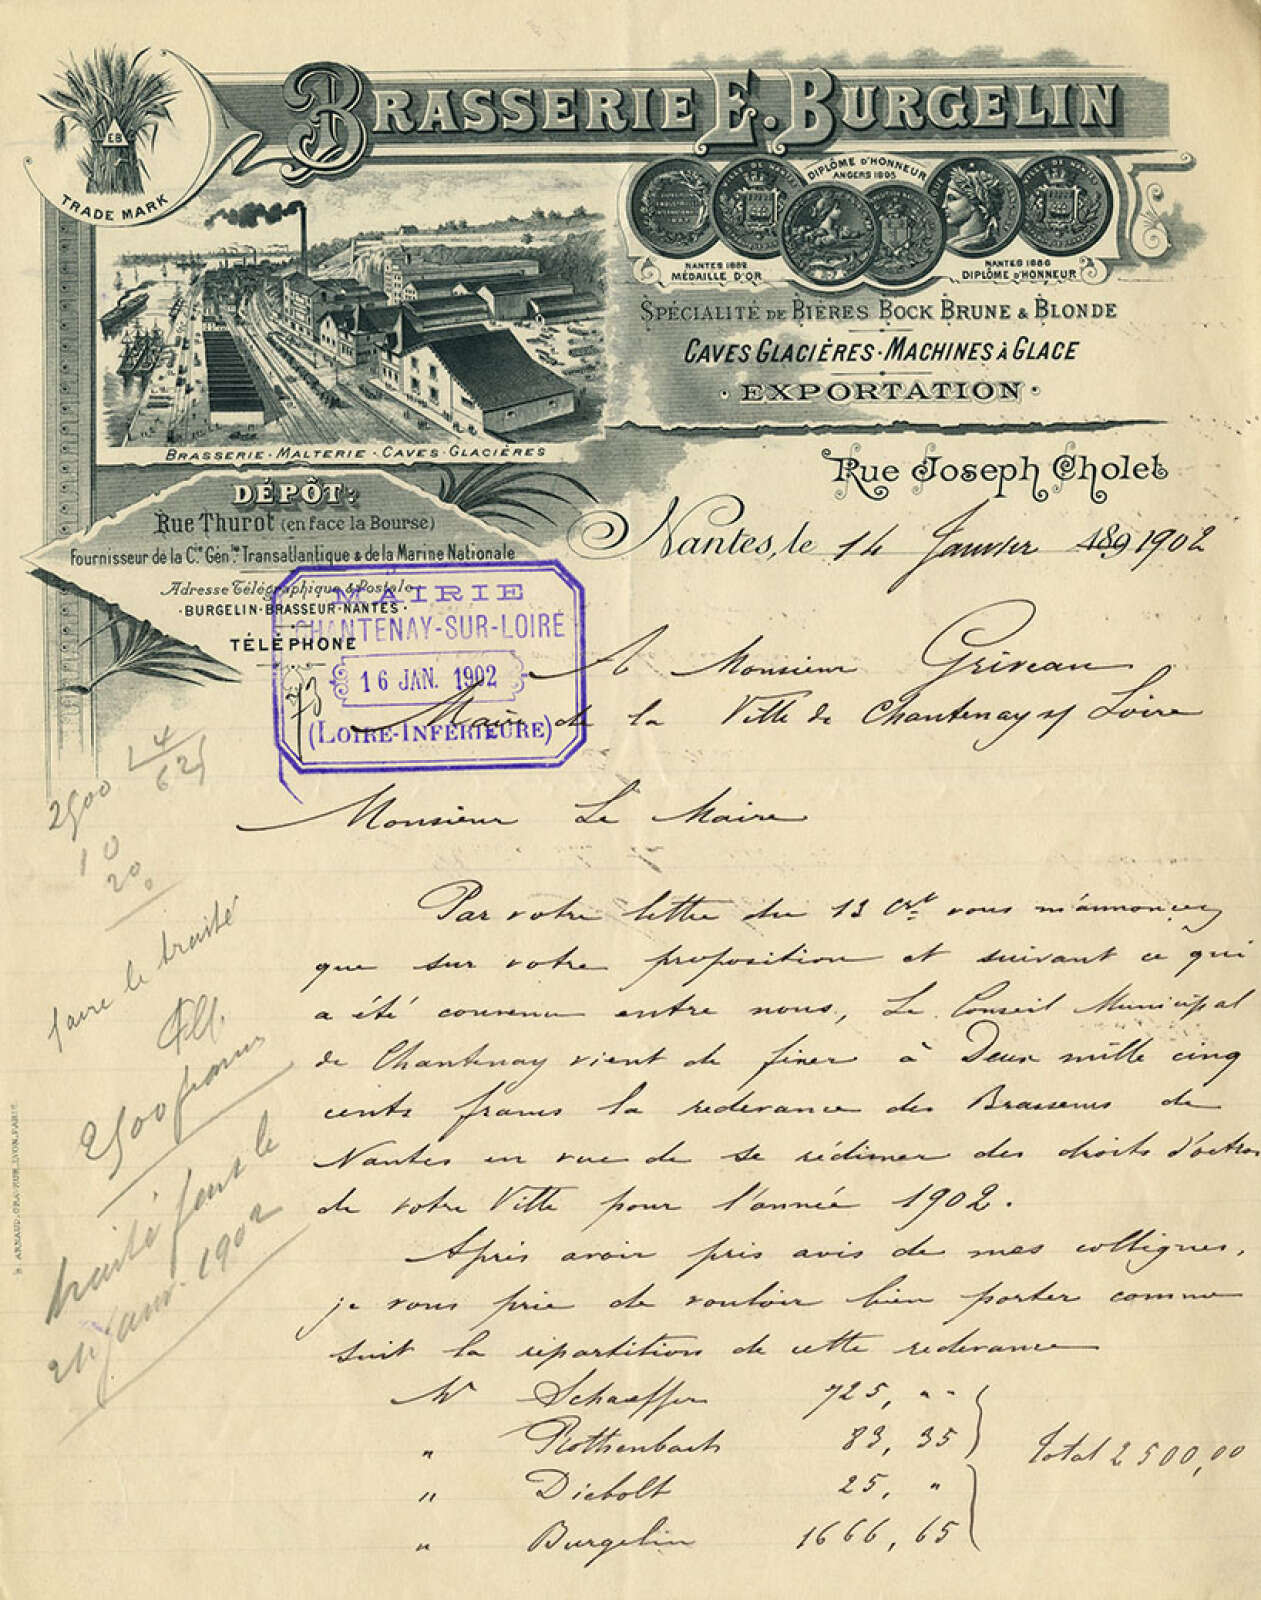 BRASSERIE E. BURGELIN
EB
TRADE MARK
DIPLÔME D'HONNEUR
ANGERS 1895
NANTES 1882
MÉDAILLE D'OR
NANTES 1886
DIPLÔME D'HONNEUR
SPÉCIALITÉ DE BIÈRES BOCK BRUNE & BLONDE
CAVES GLACIÈRES - MACHINES À GLACE
· EXPORTATION ·
BRASSERIE - MALTERIE - CAVES - GLACIÈRES
DÉPÔT:
Rue Thurot (en face la Bourse)
Fournisseur de la Cie Génle Transatlantique & de la Marine Nationale
Adresse Télégraphique & Postale
· BURGELIN-BRASSEUR-NANTES ·
TÉLÉPHONE
Rue Joseph Cholet
Nantes, le 14 Janvier 189 1902
MAIRIE
CHANTENAY-SUR-LOIRE
16 JAN. 1902
(LOIRE-INFÉRIEURE)
73
A Monsieur Griveau
Maire de la Ville de Chantenay s/ Loire
Monsieur Le Maire
Par votre lettre du 13 Crt vous m'annoncez
que sur votre proposition et suivant ce qui
a été convenu entre nous, Le Conseil Municipal
de Chantenay vient de fixer à Deux mille cinq
cents francs la redevance des Brasseurs de
Nantes en vue de se rédimer des droits d'octroi
de votre Ville pour l'année 1902.
Après avoir pris avis de mes collègues,
je vous prie de vouloir bien porter comme
suit la répartition de cette redevance
Mr Schaeffer 725, " "
" Rothenbach 83, 35
" Diebolt 25, "
" Burgelin 1666, 65
total 2500,00
2500 4
10 625
20
faire le traité
2500 francs
traité fait le
21 janv. 1902
B. ARNAUD, GRAVEUR, LYON, PARIS